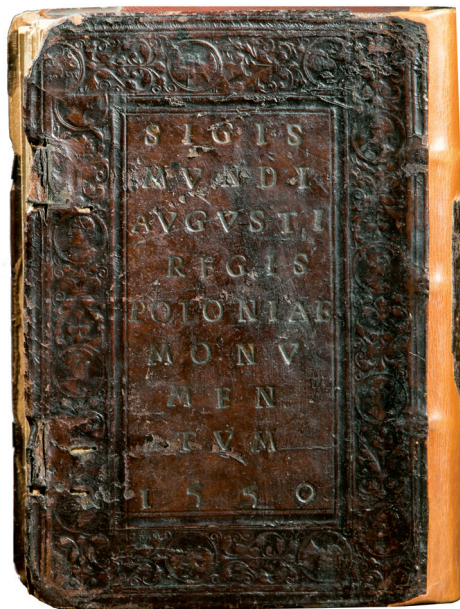 SIGIS
MVNDI
AVGVSTI
REGIS
POLONIAE
MONV
MEN
TVM
1550